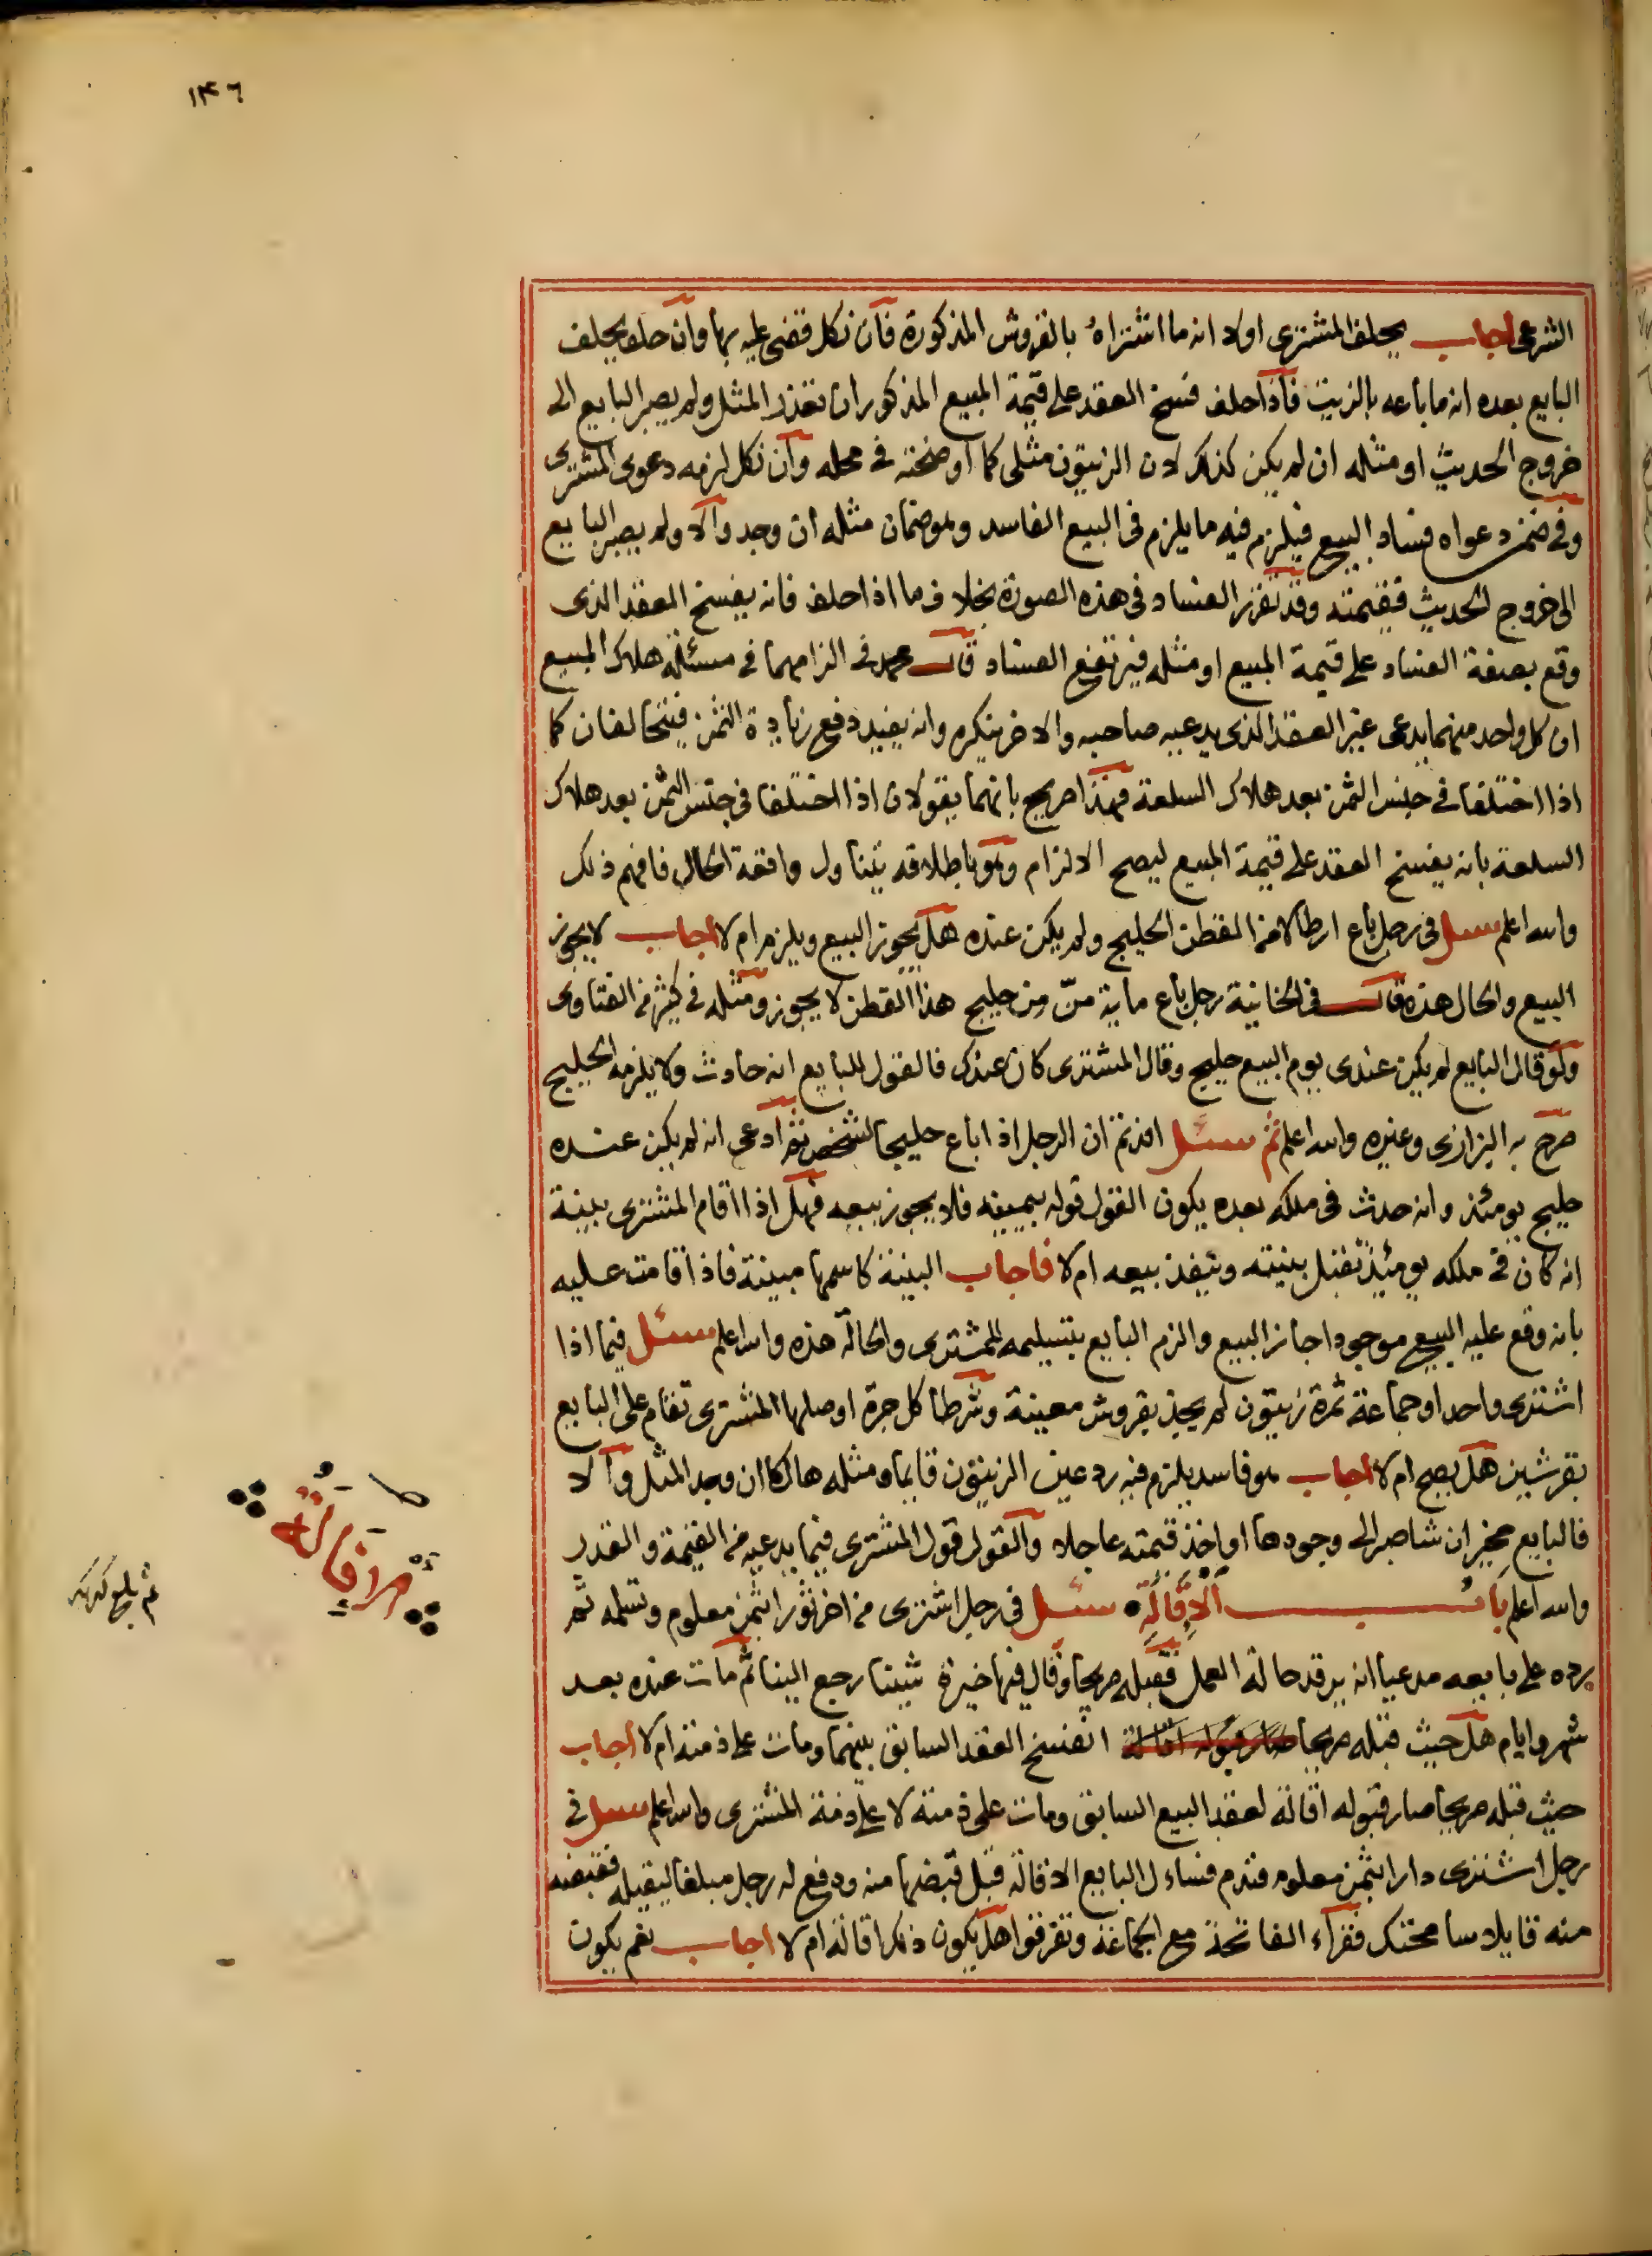 ١٣٦
الشرعى اجاب يحلف المشترى اولا انه ما اشتراه بالقروش المذكورة فان نكل قضى عليه بها وان حلف يحلف
البايع بعده انه ما باعه بالزيت فاذا حلف فسخ العقد على قيمة المبيع المذكور ان تعذر المثل ولم يصبر البايع الى
خروج الحديث او مثله ان لم يكن كذلك لان الزيتون مثلى كما اوضحته فى محله وان نكل لزمه دعوى المشترى
وفى ضمن دعواه فساد البيع فيلزم فيه ما يلزم فى البيع الفاسد وهو ضمان مثله ان وجد والا ولم يصبر البايع
الى خروج الحديث فقيمته وقد تقرر الفساد فى هذه الصورة بخلاف ما اذا حلف فانه يفسخ العقد الذى
وقع بصفة الفساد على قيمة المبيع او مثله فيرتفع الفساد قال محمد فى الزامهما فى مسئلة هلاك المبيع
ان كل واحد منهما يدعى غير العقد الذى يدعيه صاحبه والاخر ينكره وانه يفيد دفع زيادة الثمن فيتحالفان كما
اذا اختلفا فى جنس الثمن بعد هلاك السلعة فهذا صريح بانهما يقولان اذا اختلفا فى جنس الثمن بعد هلاك
السلعة بانه يفسخ العقد على قيمة المبيع ليصح الالزام وهو باطلاقه يتناول واقعة الحال فافهم ذلك
والله اعلم سئل فى رجل باع ارطالا من القطن الحليج ولم يكن عنده هل يجوز البيع ويلزم ام لا اجاب لا يجوز
البيع والحال هذه قال فى الخانية رجل باع ماية منّ من حليج هذا القطن لا يجوز ومثله فى كثير من الفتاوى
ولو قال البايع لم يكن عندى يوم البيع حليج وقال المشترى كان عندك فالقول للبايع انه حادث ولا يلزمه الحليج
صرح به البزازى وغيره والله اعلم ثم سئل افدتم ان الرجل اذا باع حليجا لشخص ثم ادعى انه لم يكن عنده
حليج يومئذ وانه حدث فى ملكه بعده يكون القول قوله بيمينه فلا يجوز بيعه فهل اذا اقام المشترى بينة
انه كان فى ملكه يومئذ تقبل بينته وينفذ بيعه ام لا فاجاب البينة كاسمها مبينة فاذا قامت عليه
بانه وقع عليه البيع موجودا جاز البيع والزم البايع بتسليمه للمشترى والحالة هذه والله اعلم سئل فيما اذا
اشترى واحد او جماعة ثمرة زيتون لم يجذ بقروش معينة وشرطا كل جرة اوصلها المشترى تقام على البايع
بقرشين هل يصح ام لا اجاب هو فاسد يلزم فيه رد عين الزيتون قايما ومثله هالكا ان وجد المثل والا
فالبايع مخير ان شا صبر الى وجودها او اخذ قيمته عاجلا والقول قول المشترى فيما يدعيه من القيمة والقدر
والله اعلم باب الاقالة سئل فى رجل اشترى من اخر ثورا بثمن معلوم وتسلمه ثم
رده على بايعه مدعيا انه يرقد حالة العمل فقبله صريحا وقال فيها خيرة شيئنا رجع الينا ثم مات عنده بعد
شهر وايام هل حيث قبله صريحا صار قبوله اقالة انفسخ العقد السابق بينهما ومات على ذمته ام لا اجاب
حيث قبله صريحا صار قبوله اقالة لعقد البيع السابق ومات على ذمته لا على ذمة المشترى والله اعلم سئل فى
رجل اشترى دارا بثمن معلوم فندم فساءل البايع الاقالة قبل قبضها منه ودفع له رجل مبلغا ليقيله فقبضه
منه قايلا سامحتك فقراء الفاتحة مع الجماعة وتفرقوا هل يكون ذلك اقالة ام لا اجاب نعم يكون
مط
الاقالة